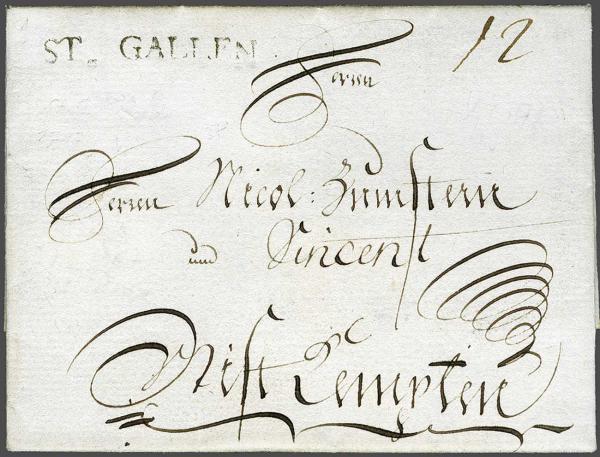 ST. GALLEN 12
Herren
Herren Nicol: Zumstein
und Vincent
Stift Kempten